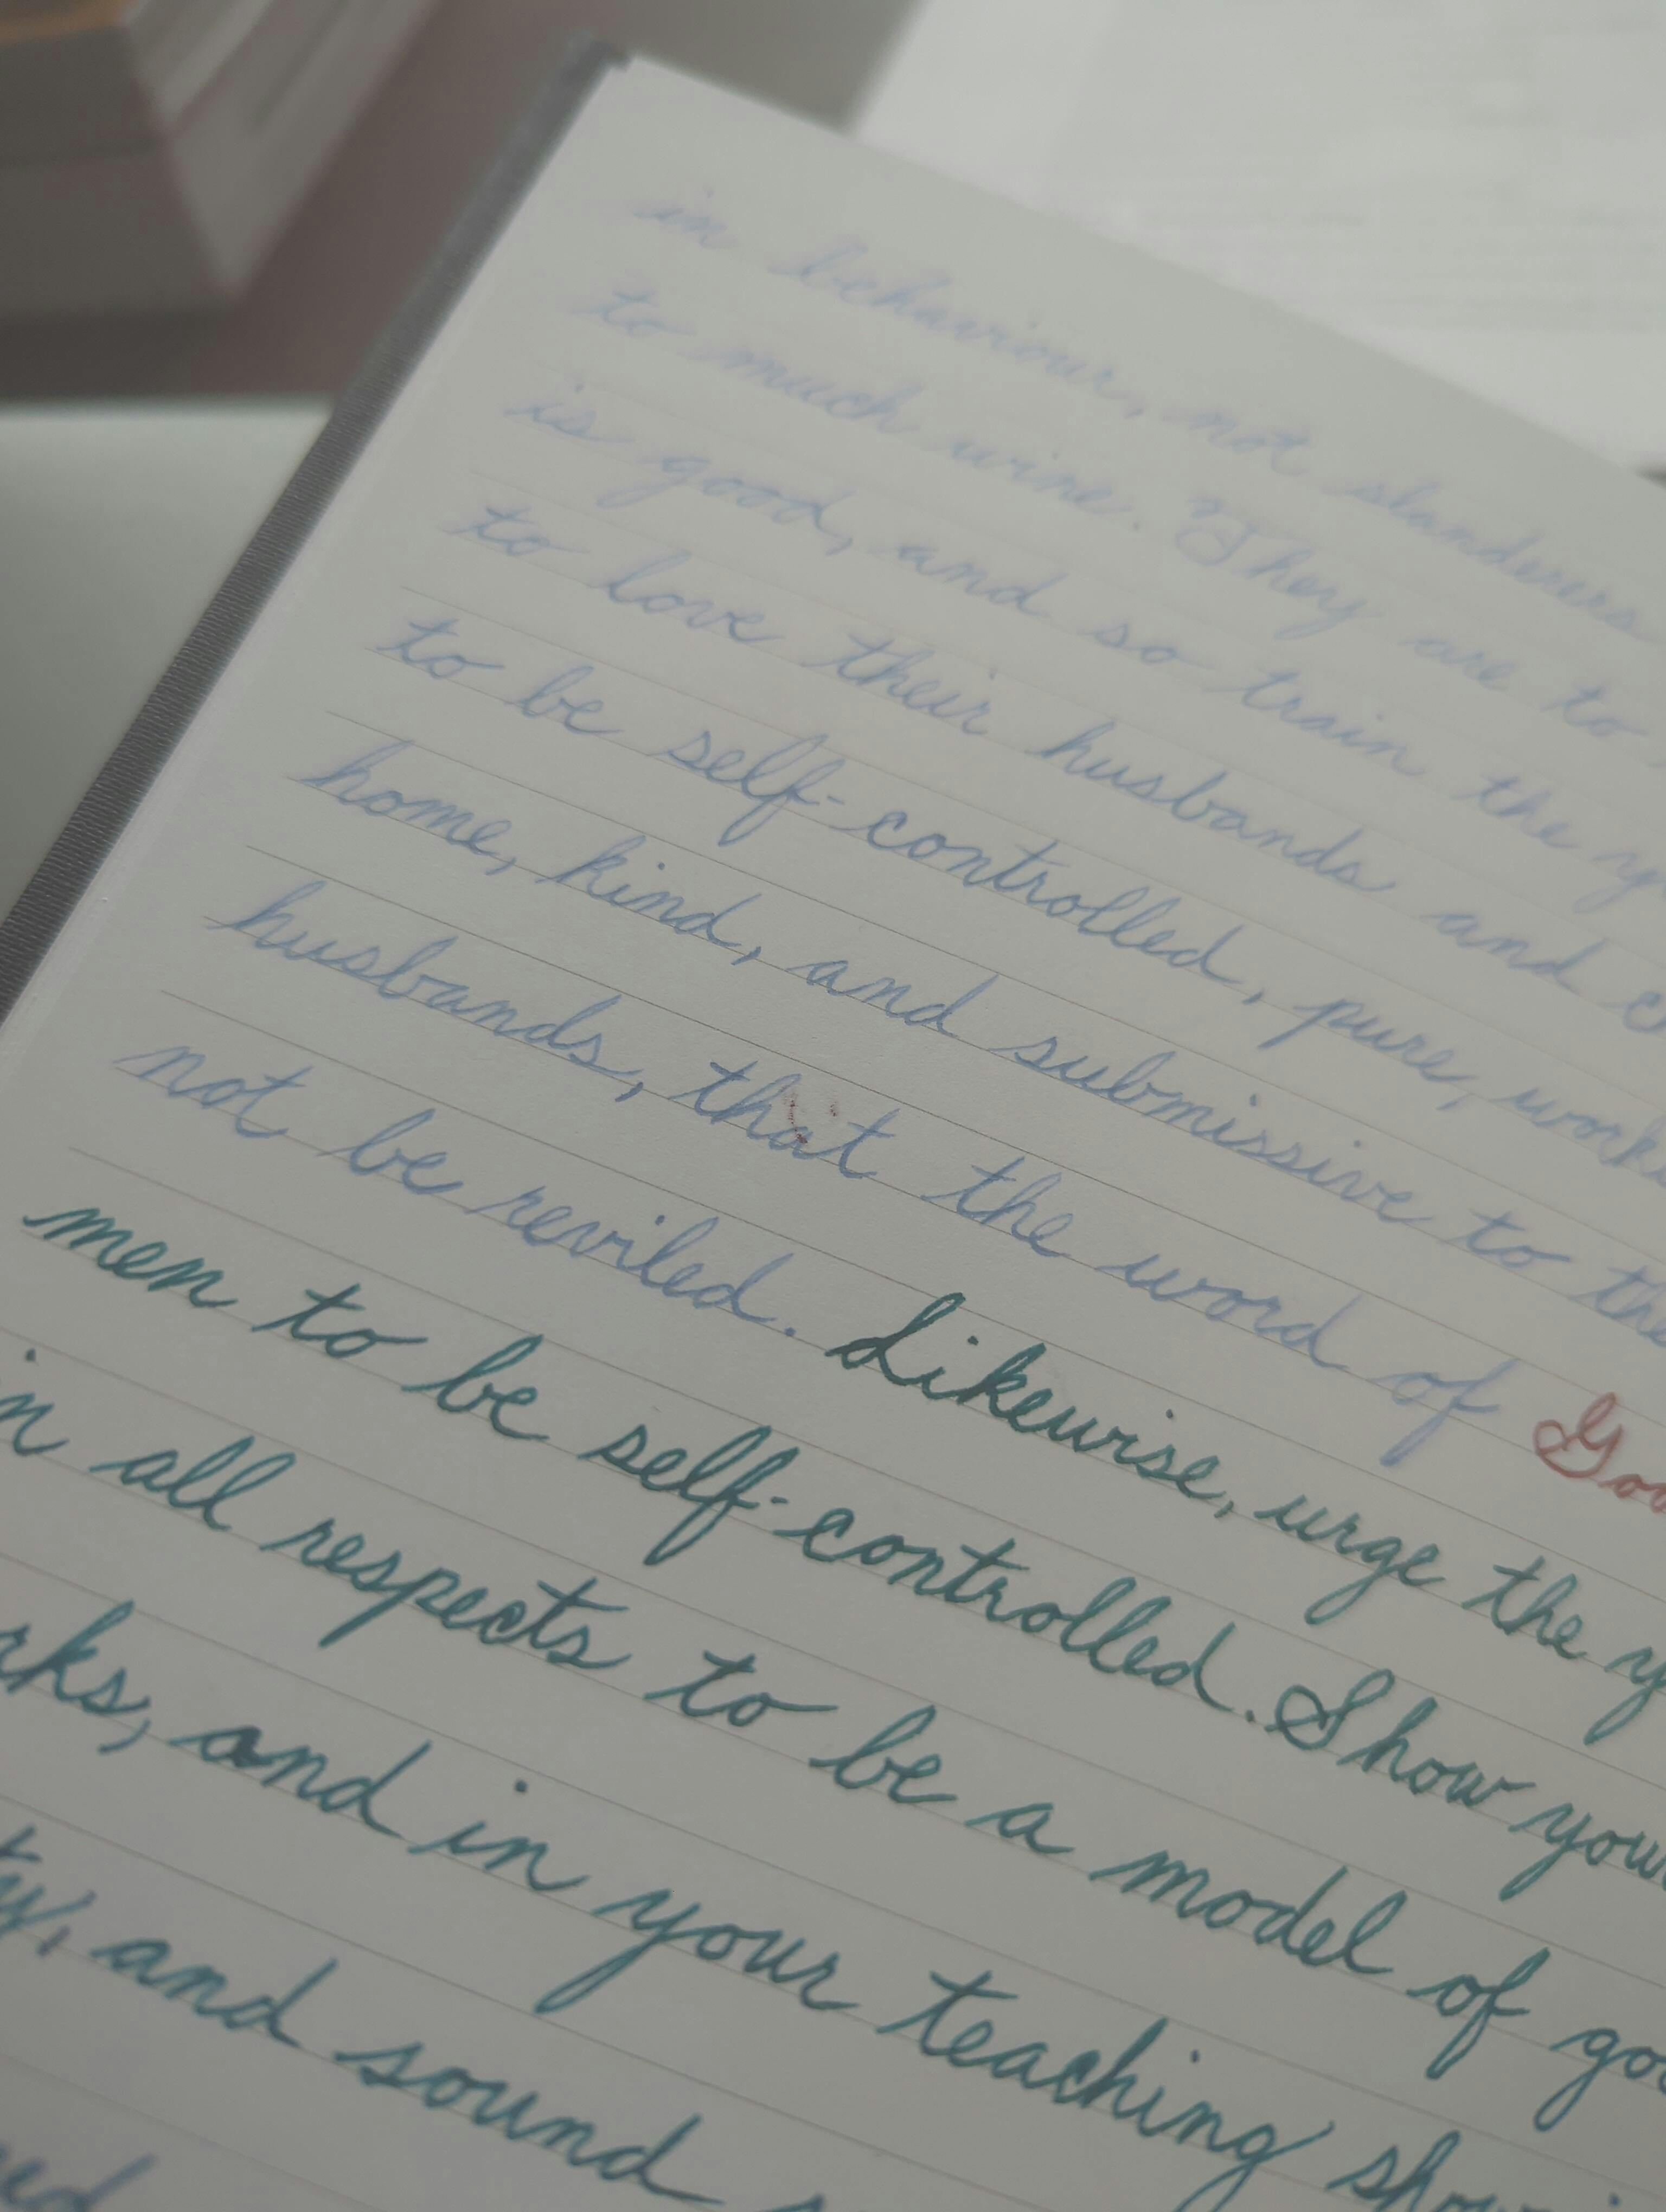 in behaviour, not slanderers
to much wine. They are to
is good, and so train the
to love their husbands and
to be self-controlled, pure,
home, kind, and submissive to
husbands, that the word of
not be reviled. Likewise, urge the
men to be self-controlled. Show
in all respects to be a model of
and in your teaching
and sound